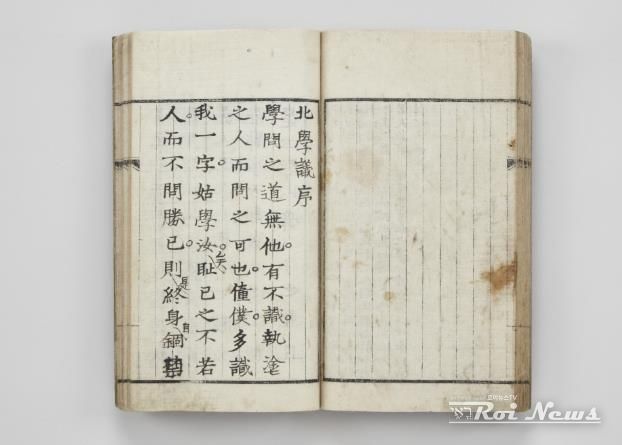 北學議序
學問之道無他。有不識。執塗
之人而問之可也。僮僕。多識
我一字。姑學汝。矣耻己之不若
人。而不問勝己。則是終身自錮
로이뉴스TV
Roi News